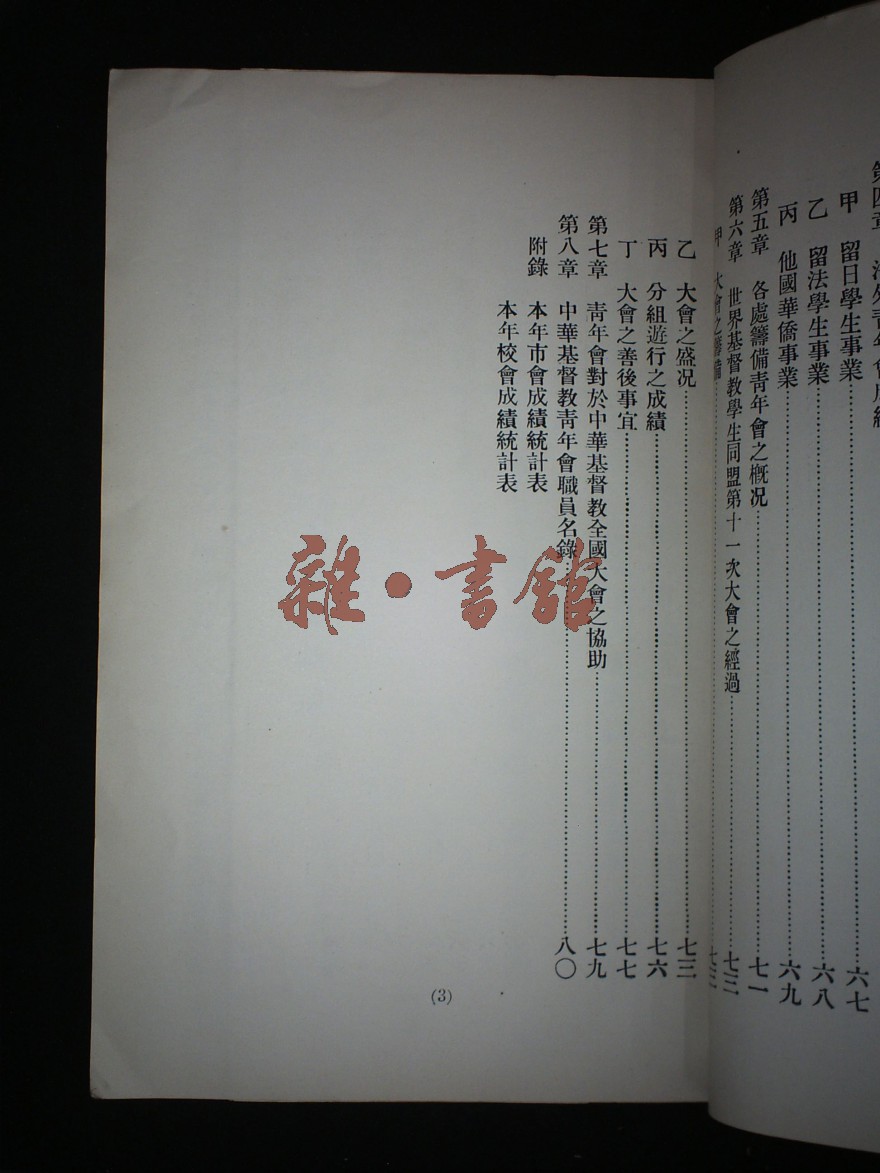 第四章 海外青年會成績
甲 留日學生事業……六七
乙 留法學生事業……六八
丙 他國華僑事業……六九
第五章 各處籌備靑年會之概况……七一
第六章 世界基督敎學生同盟第十一次大會之經過……七二
甲 大會之籌備……七二
乙 大會之盛况……七三
丙 分組遊行之成績……七六
丁 大會之善後事宜……七七
第七章 靑年會對於中華基督敎全國大會之協助……七九
第八章 中華基督敎靑年會職員名錄……八〇
附錄 本年市會成績統計表
本年校會成績統計表
(3)
雜·書館